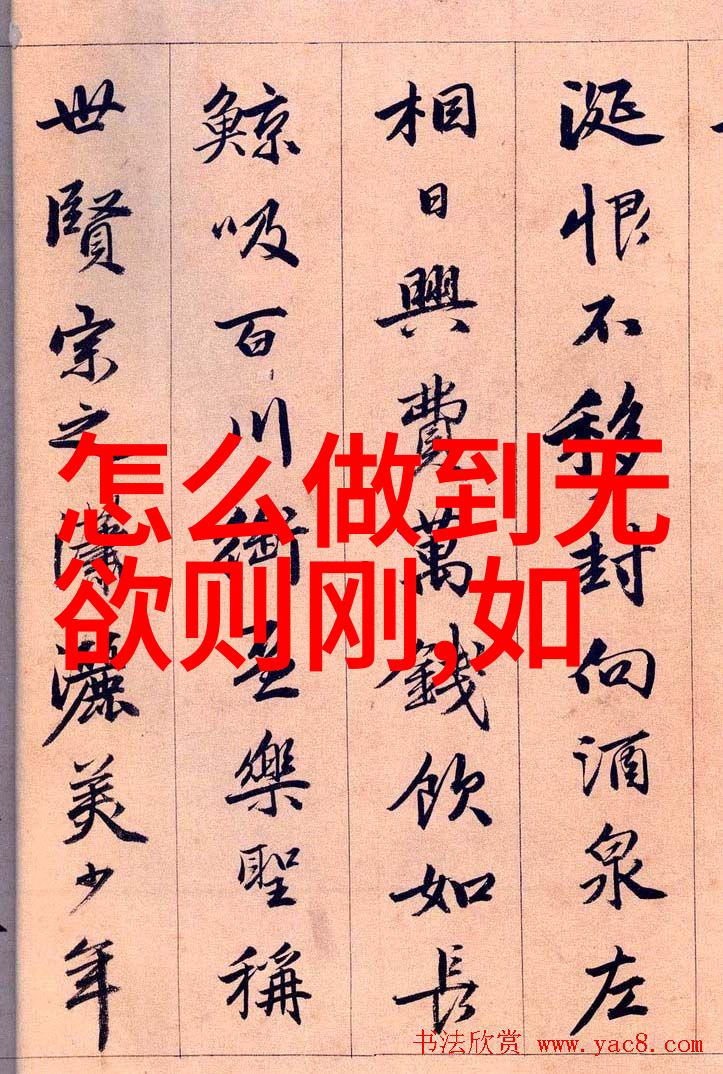 涎恨不移封向酒泉左
相日興費萬錢飲如長
鯨吸百川銜盃樂聖稱
世賢宗之瀟灑美少年
怎么做到无
欲则刚,如
书法欣赏 www.yac8.com